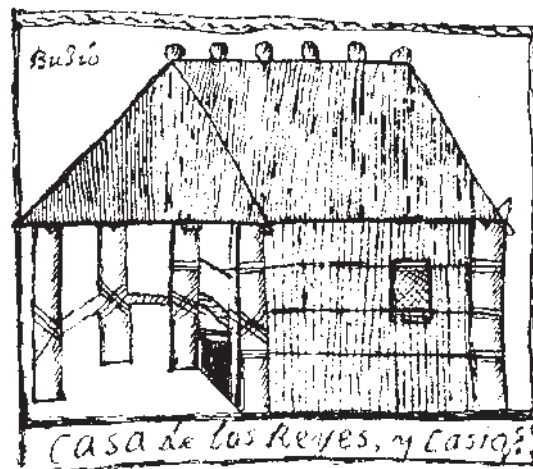 Buhío
CASA de los Reyes, y Casiq.s